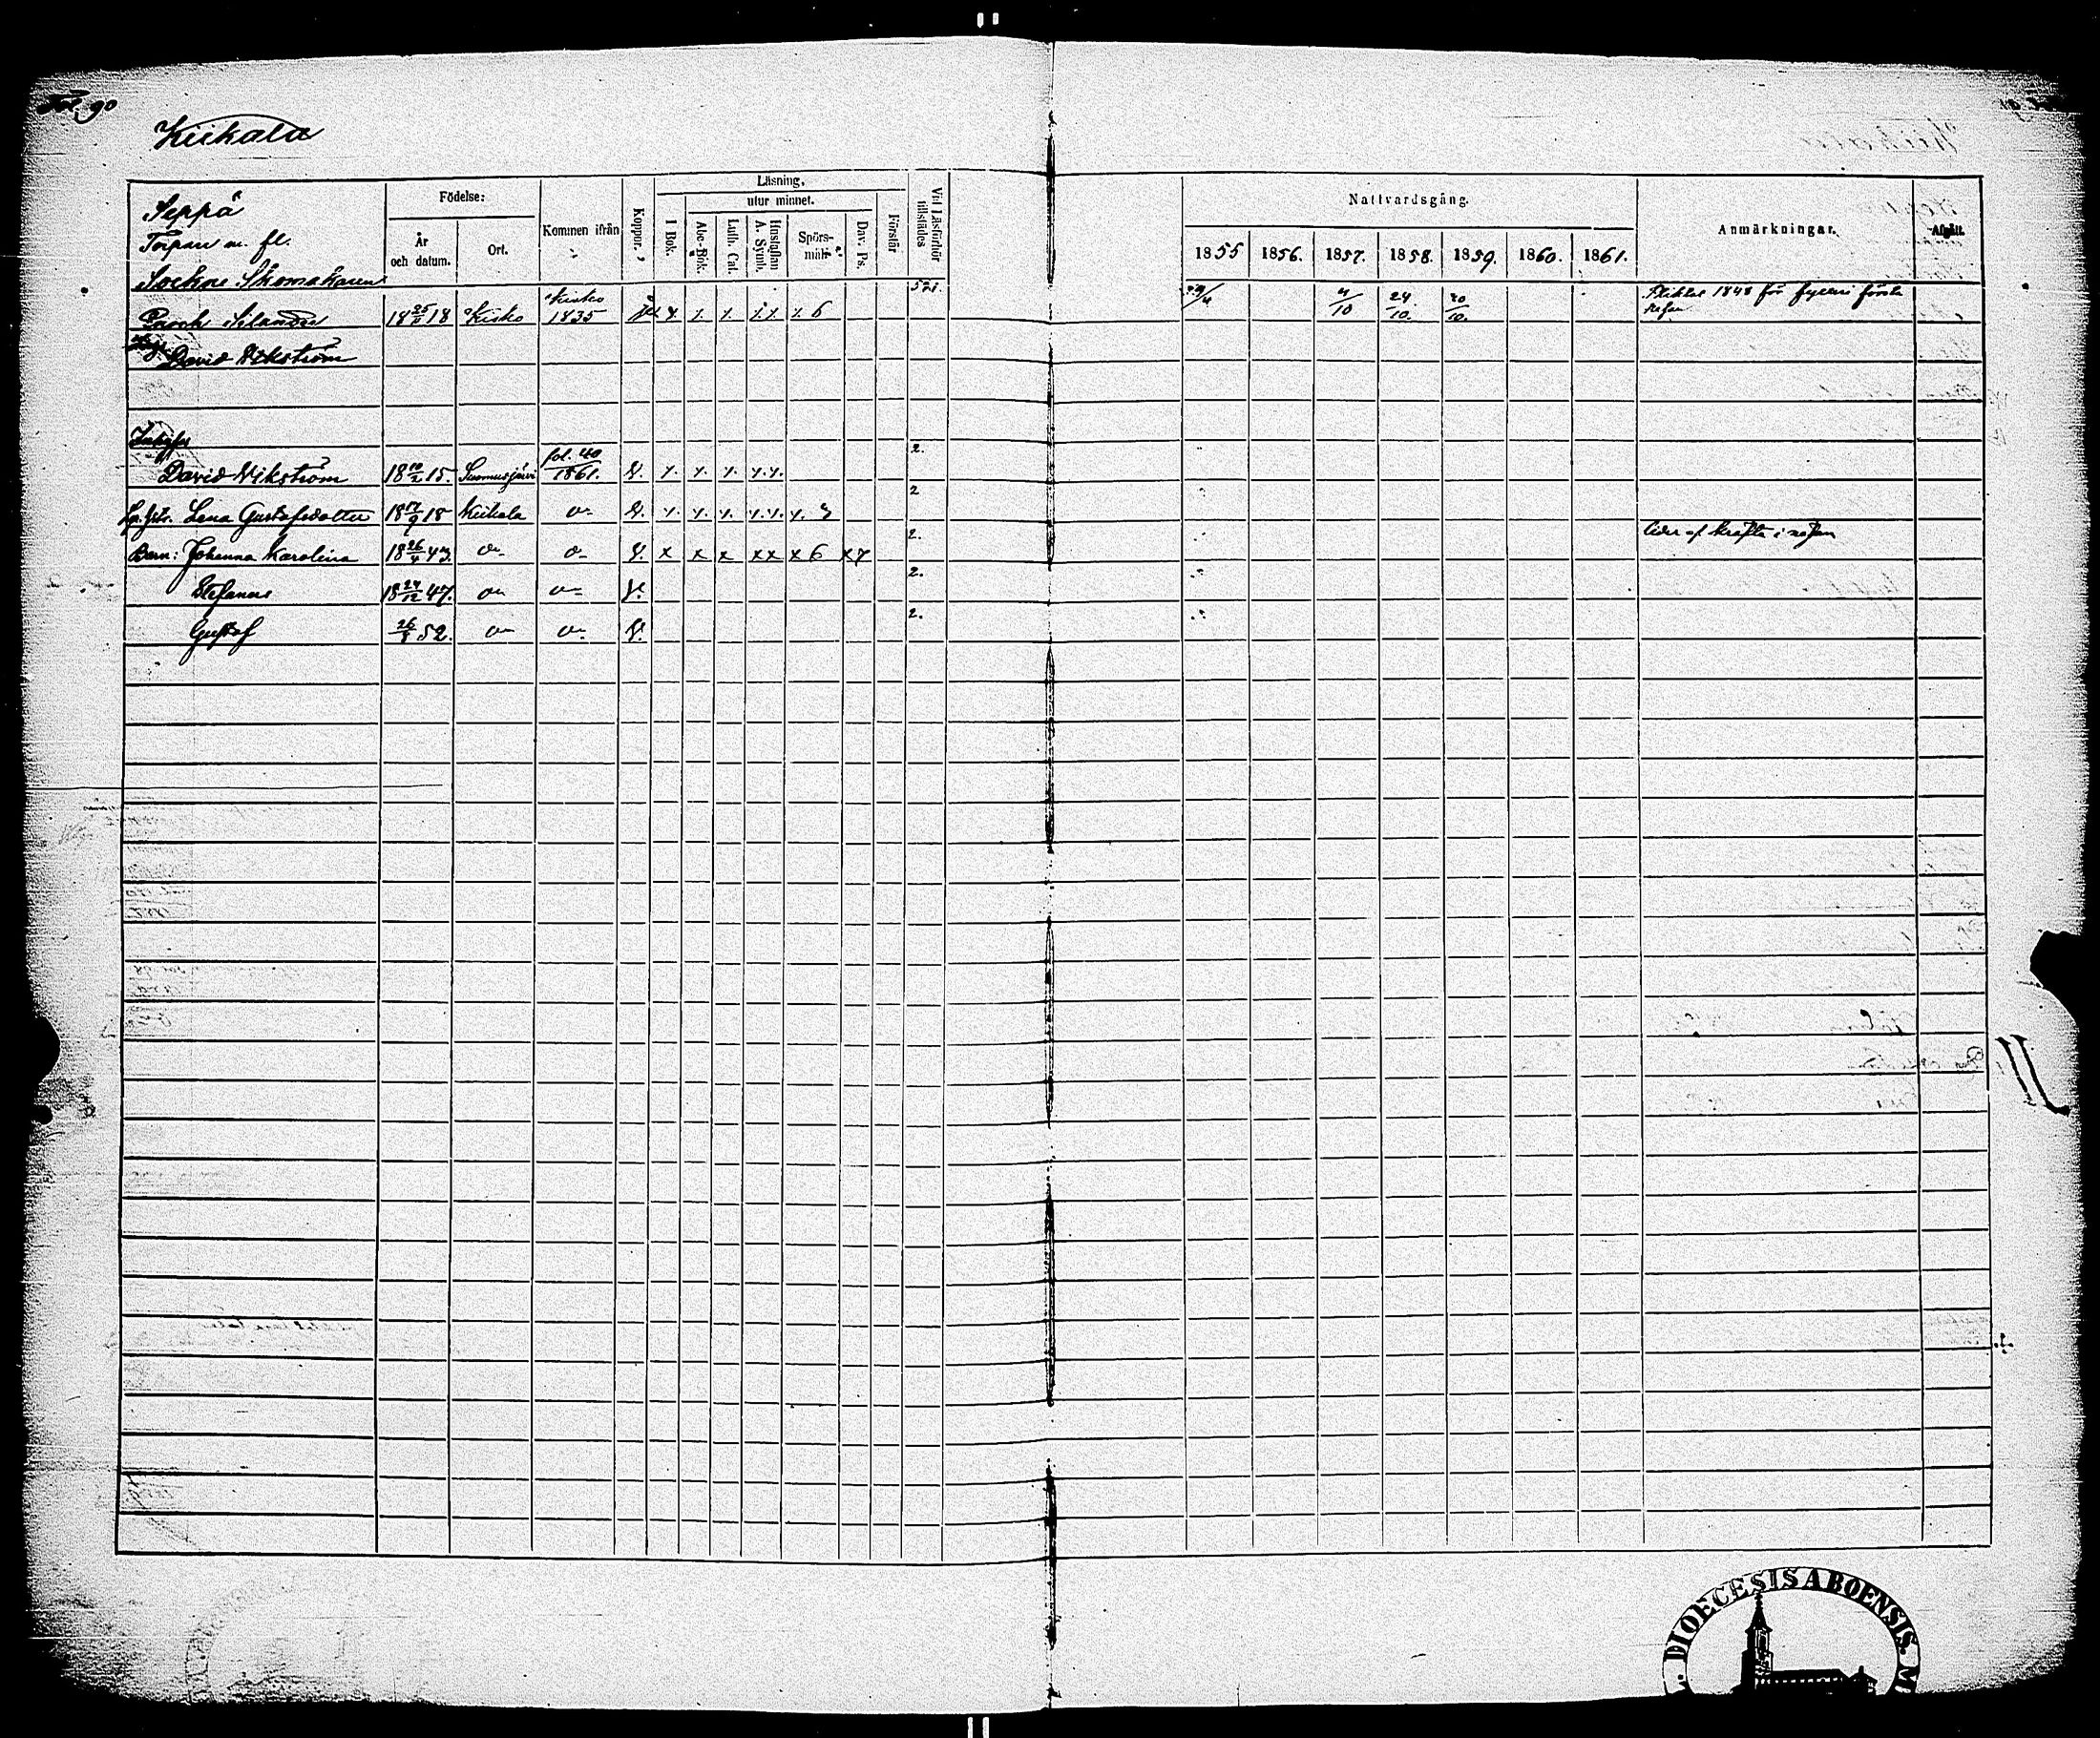 Fol. 90
Kiikala
Seppä
Torpare m. fl.
Födelse:
År och datum.
Ort.
Kommen ifrån
Koppor.
Läsning,
utur minnet.
I Bok.
Abc-Bok.
Luth. Cat.
Hustaflan A. Symb.
Spörs-mål:
Dav. Ps.
Förstår
Vid Läsförhör tillstädes
Nattvardsgång.
1855 1856. 1857. 1858. 1859. 1860. 1861.
Anmärkningar.
Afgått.
Sockne Skomakaren
Enoch Silander 18 25/11 18 Kisko Kisko 1835 x x x x x x 6 521. 4/10 24/10. 20/10. 1848 för fylleri första
David Wikström
Inhyses
David Wikström 18 10/2 15. Suomusjärvi fol. 40 1861. v. x. x. x. x.x. 2.
Lena Gustafsdotter 18 17/9 18 Kiikala o- v. x. x. x. x.x. x. 2
Barn: Johanna Karolina 18 26/4 43. o- o- v. x x x x x x 6 x 7 2. lider af kräfta i näsan
Stefanus 18 24/12 47. o- o- v. 2.
Gustaf 26/8 52. o- o- v. 2.
DIOECESIS ABOENSIS. M